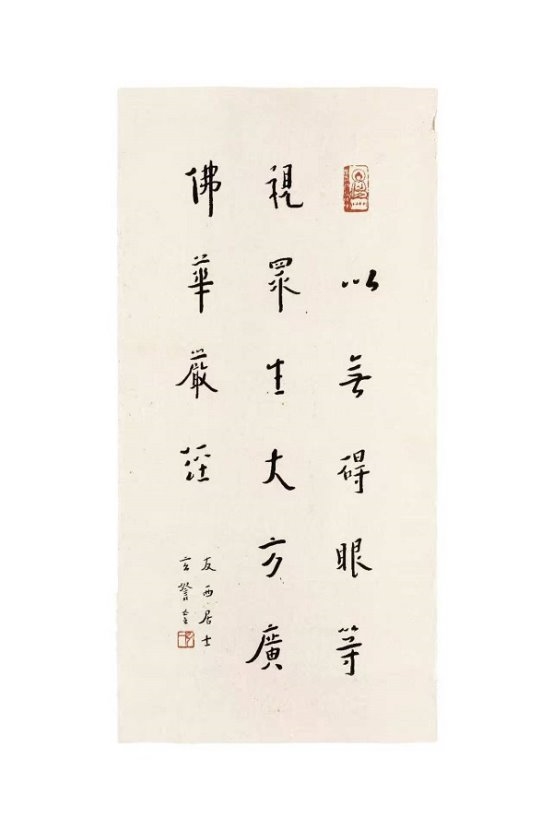 以無碍眼等
視眾生大方廣
佛華嚴經
友西居士
玄書